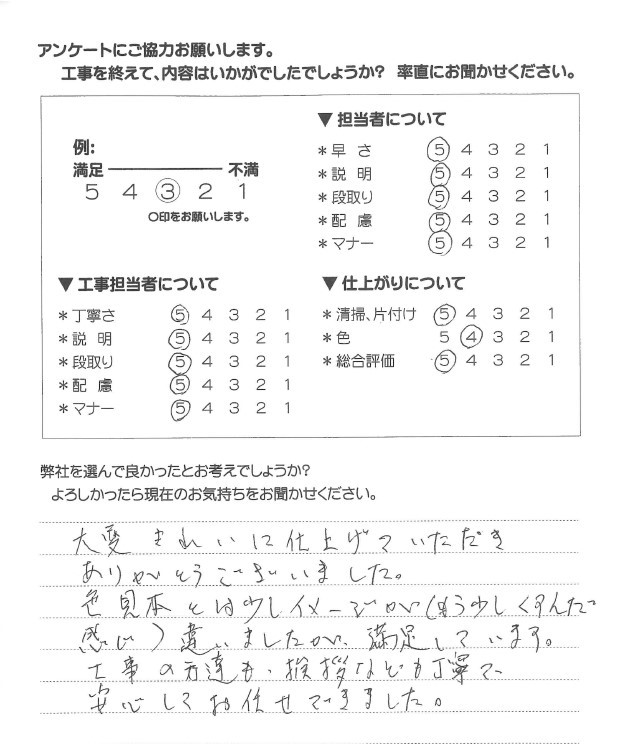 アンケートにご協力お願いします。
工事を終えて、内容はいかがでしたでしょうか? 率直にお聞かせください。
例:
満足 不満
5 4 3 2 1
○印をお願いします。
▼担当者について
*早 さ 5 4 3 2 1
*説 明 5 4 3 2 1
*段取り 5 4 3 2 1
*配 慮 5 4 3 2 1
*マナー 5 4 3 2 1
▼工事担当者について
*丁寧さ 5 4 3 2 1
*説 明 5 4 3 2 1
*段取り 5 4 3 2 1
*配 慮 5 4 3 2 1
*マナー 5 4 3 2 1
▼仕上がりについて
*清掃、片付け 5 4 3 2 1
*色 5 4 3 2 1
*総合評価 5 4 3 2 1
弊社を選んで良かったとお考えでしょうか?
よろしかったら現在のお気持ちをお聞かせください。
大変きれいに仕上げていただき
ありがとうございました。
色見本とは少しイメージが(もう少しくすんだ
感じ)違いましたが、満足しています。
工事の方達も、挨拶なども丁寧で、
安心してお任せできました。